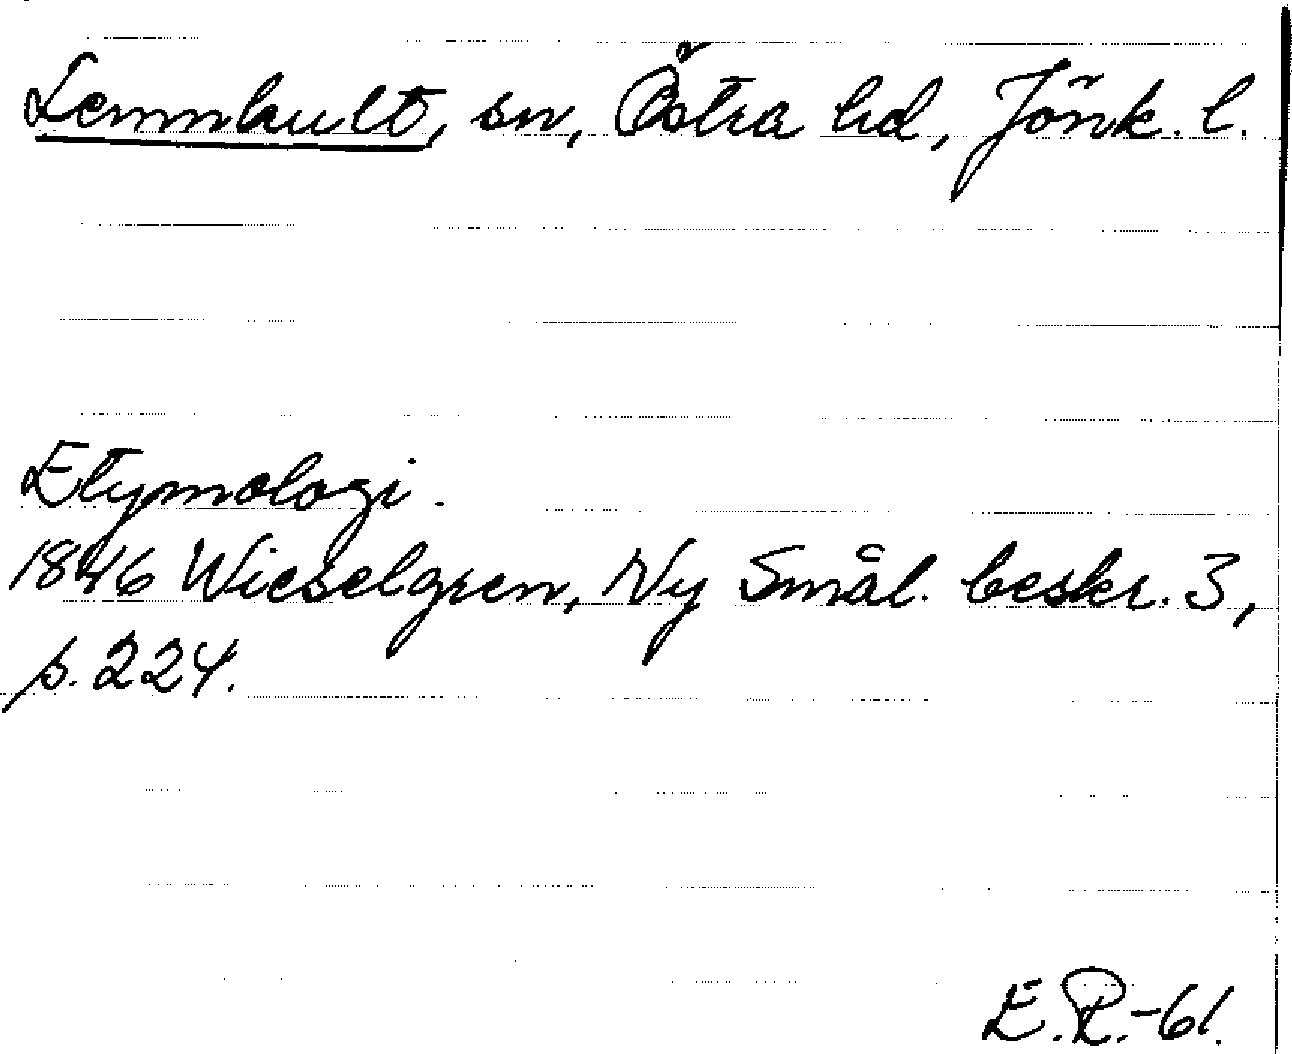 Lemnhult, sn, Östra hd, Jönk. l.
Etymologi.
1846 Wieselgren, Ny Smål. beskr. 3,
p. 224.
E.R.-61.